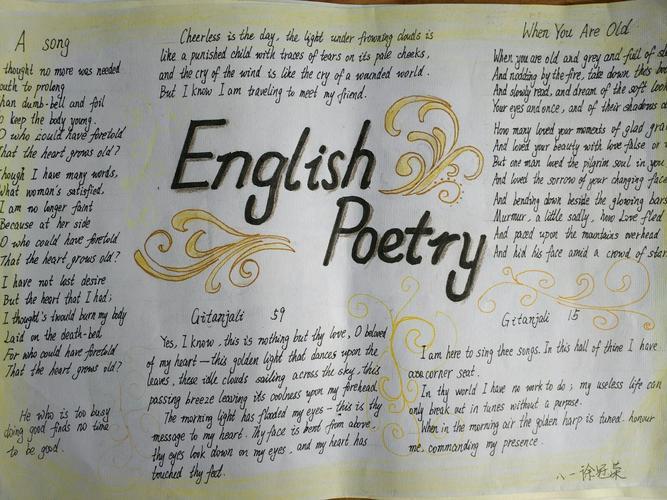 A song
thought no more was needed
outh to prolong
han dumb-bell and foil
o keep the body young.
O who could have foretold
That the heart grows old?
hough I have many words,
What woman's satisfied.
I am no longer faint
Because at her side
O who could have foretold
That the heart grows old?
I have not lost desire
But the heart that I had;
I thought's twould burn my body
Laid on the death-bed
For who could have foretold
That the heart grows old?
He who is too busy
doing good finds no time
to be good.
Cheerless is the day, the light under frowning clouds is
like a punished child with traces of tears on its pale cheeks,
and the cry of the wind is like the cry of a wounded world.
But I know I am traveling to meet my friend.
English
Poetry
Gitanjali 59
Yes, I know, this is nothing but thy love, O beloved
of my heart — this golden light that dances upon the
leaves, these idle clouds sailing across the sky, this
passing breeze leaving its coolness upon my forehead.
The morning light has flooded my eyes — this is thy
message to my heart. Thy face is bent from above,
thy eyes look down on my eyes, and my heart has
touched thy feet.
When You Are Old
When you are old and grey and full of
And nodding by the fire, take down this
And slowly read, and dream of the soft look
Your eyes and once, and of their shadows
How many loved your moments of glad gra
And loved your beauty with love false or
But one man loved the pilgrim soul in you
And loved the sorrow of your changing face
And bending down beside the glowing bars
Murmur, a little sadly, how Love fled
And paced upon the mountains overhead
And hid his face amid a crowd of star
Gitanjali 15
I am here to sing thee songs. In this hall of thine I have
a corner seat.
In thy world I have no work to do; my useless life can
only break out in tunes without a purpose.
When in the morning air the golden harp is tuned. honour
me, commanding my presence.
八一徐冠